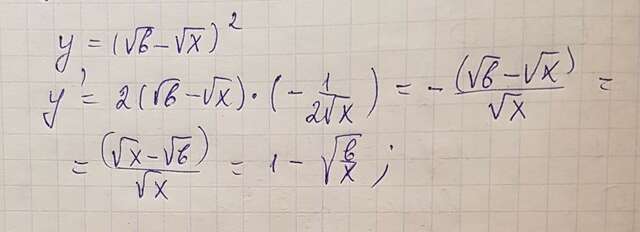 y = (√b − √x)²
y' = 2(√b − √x) · (− 1/(2√x)) = − (√b − √x)/√x =
= (√x − √b)/√x = 1 − √(b/x) ;